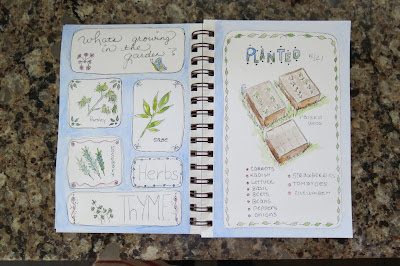 What's growing
in the
garden?
Parsley
SAGE
ROSEMARY
Herbs
THYME
PLANTED
RAISED
BEDS
CARROTS
RADISH
LETTUCE
BASIL
BEETS
BEANS
PEPPERS
ONIONS
STRAWBERRIES
TOMATOES
CUCUMBER